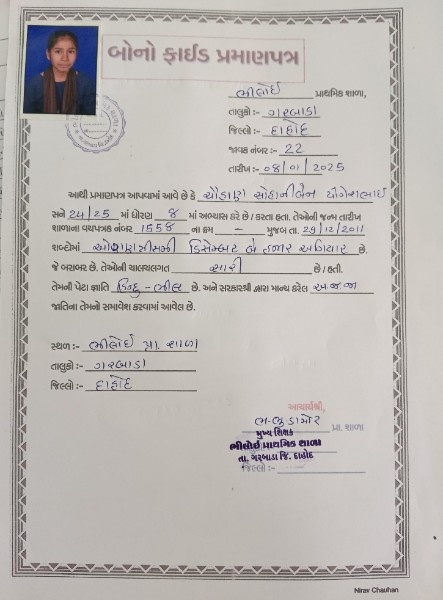 બોનો ફાઈડ પ્રમાણપત્ર
ભીલોઈ પ્રાથમિક શાળા,
તાલુકો :- ગરબાડા
જિલ્લો :- દાહોદ
જાવક નંબર :- 22
તારીખ :- 08/01/2025
આથી પ્રમાણપત્ર આપવામાં આવે છે કે ચૌહાણ સોહાનીબેન યોગેશભાઈ
સને 24/25 માં ધોરણ 8 માં અભ્યાસ કરે છે / કરતા હતા. તેઓની જન્મ તારીખ
શાળાના વયપત્રક નંબર 1558 ના ક્રમ - મુજબ તા. 29/12/2011
શબ્દોમાં ઓગણત્રીસમી ડિસેમ્બર બે હજાર અગિયાર છે.
જે બરાબર છે. તેઓની ચાલચલગત સારી છે / હતી.
તેમની પેટા જ્ઞાતિ હિન્દુ-ભીલ છે. અને સરકારશ્રી દ્વારા માન્ય કરેલ અ.જ.જા
જાતિના તેમનો સમાવેશ કરવામાં આવેલ છે.
સ્થળ :- ભીલોઈ પ્રા. શાળા
તાલુકો :- ગરબાડા
જિલ્લો :- દાહોદ
આચાર્યશ્રી,
પ્રા. શાળા
મુખ્ય શિક્ષક
ભીલોઈ પ્રાથમિક શાળા
તા. ગરબાડા જિ. દાહોદ
જિલ્લો :-
Nirav Chauhan